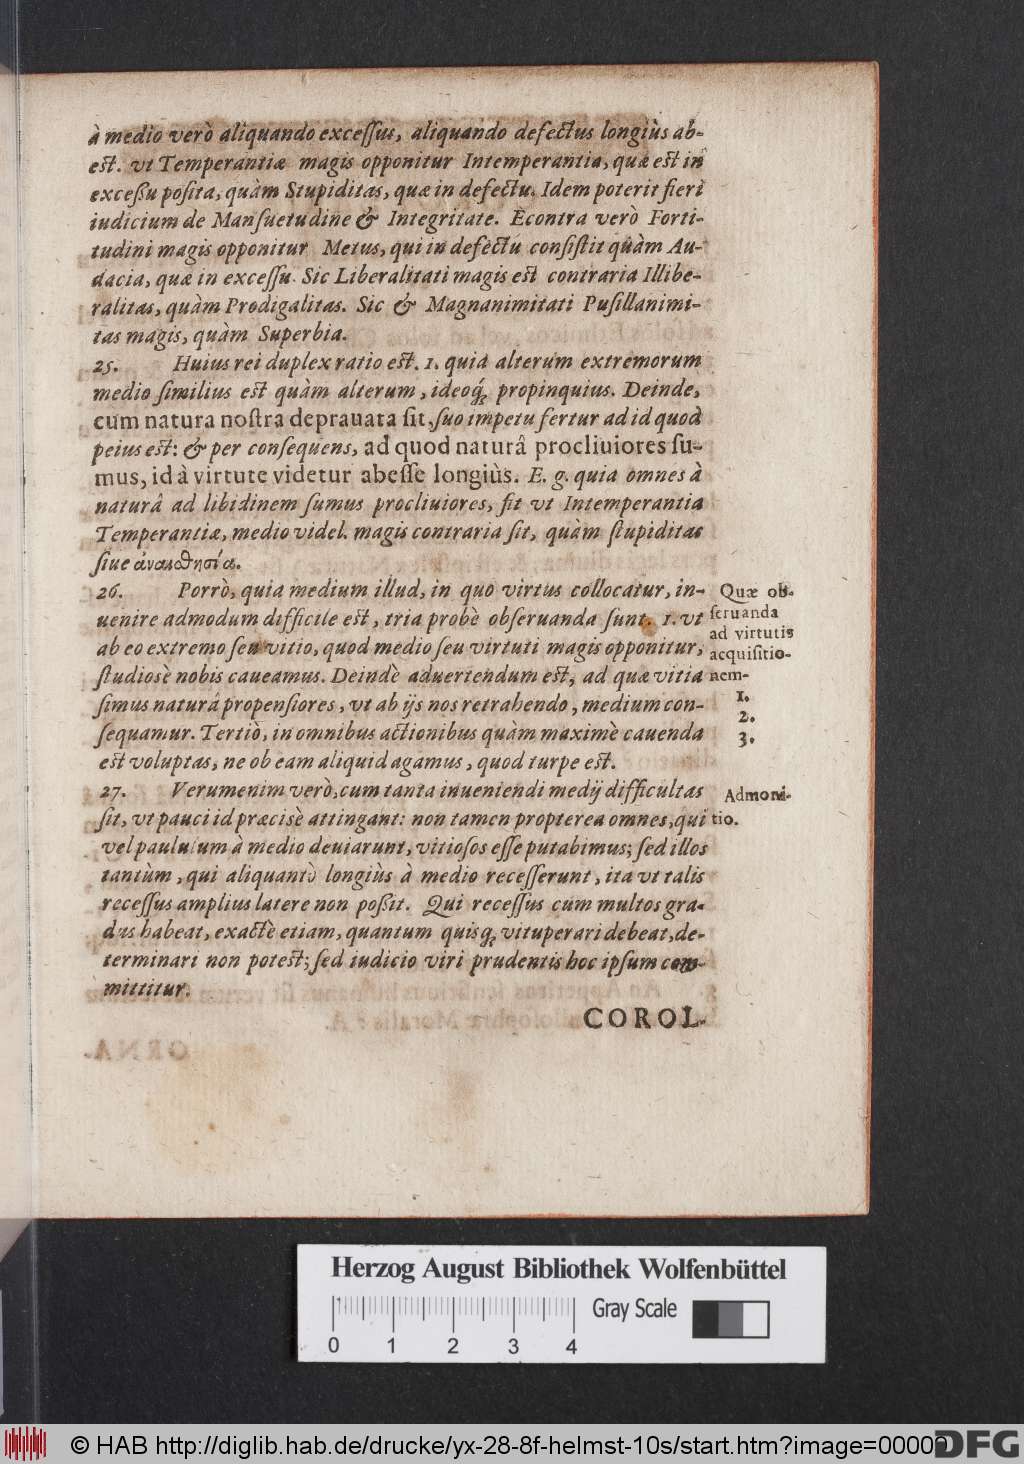 à medio verò aliquando excessus, aliquando defectus longiùs ab-
est. vt Temperantiæ magis opponitur Intemperantia, quæ est in
excessu posita, quàm Stupiditas, quæ in defectu. Idem poterit fieri
iudicium de Mansuetudine & Integritate. Econtra verò Forti-
tudini magis opponitur Metus, qui in defectu consistit quàm Au-
dacia, quæ in excessu. Sic Liberalitati magis est contraria Illibe-
ralitas, quàm Prodigalitas. Sic & Magnanimitati Pusillanimi-
tas magis, quàm Superbia.
25. Huius rei duplex ratio est. 1. quia alterum extremorum
medio similius est quàm alterum, ideoq́; propinquius. Deinde,
cum natura nostra deprauata sit, suo impetu fertur ad id quod
peius est: & per consequens, ad quod naturâ procliuiores su-
mus, id à virtute videtur abesse longiùs. E. g. quia omnes à
naturâ ad libidinem sumus procliuiores, fit vt Intemperantia
Temperantiæ, medio videl. magis contraria sit, quàm stupiditas
siue ἀναισθησία.
26. Porrò, quia medium illud, in quo virtus collocatur, in-
uenire admodum difficile est, tria probè obseruanda sunt. 1. vt
ab eo extremo seu vitio, quod medio seu virtuti magis opponitur,
studiosè nobis caueamus. Deindè aduertendum est, ad quæ vitia
simus naturâ propensiores, vt ab ijs nos retrahendo, medium con-
sequamur. Tertiò, in omnibus actionibus quàm maximè cauenda
est voluptas, ne ob eam aliquid agamus, quod turpe est.
Quæ ob-
seruanda
ad virtutis
acquisitio-
nem.
1.
2.
3.
27. Verumenim verò, cum tanta inueniendi medij difficultas
sit, vt pauci id præcisè attingant: non tamen propterea omnes, qui
vel paululum à medio deuiarunt, vitiosos esse putabimus; sed illos
tantùm, qui aliquantò longiùs à medio recesserunt, ita vt talis
recessus amplius latere non possit. Qui recessus cùm multos gra-
dus habeat, exactè etiam, quantum quisq; vituperari debeat, de-
terminari non potest; sed iudicio viri prudentis hoc ipsum com-
mittitur.
Admoni-
tio.
COROL-
Herzog August Bibliothek Wolfenbüttel
Gray Scale
0 1 2 3 4
© HAB http://diglib.hab.de/drucke/yx-28-8f-helmst-10s/start.htm?image=00009
DFG